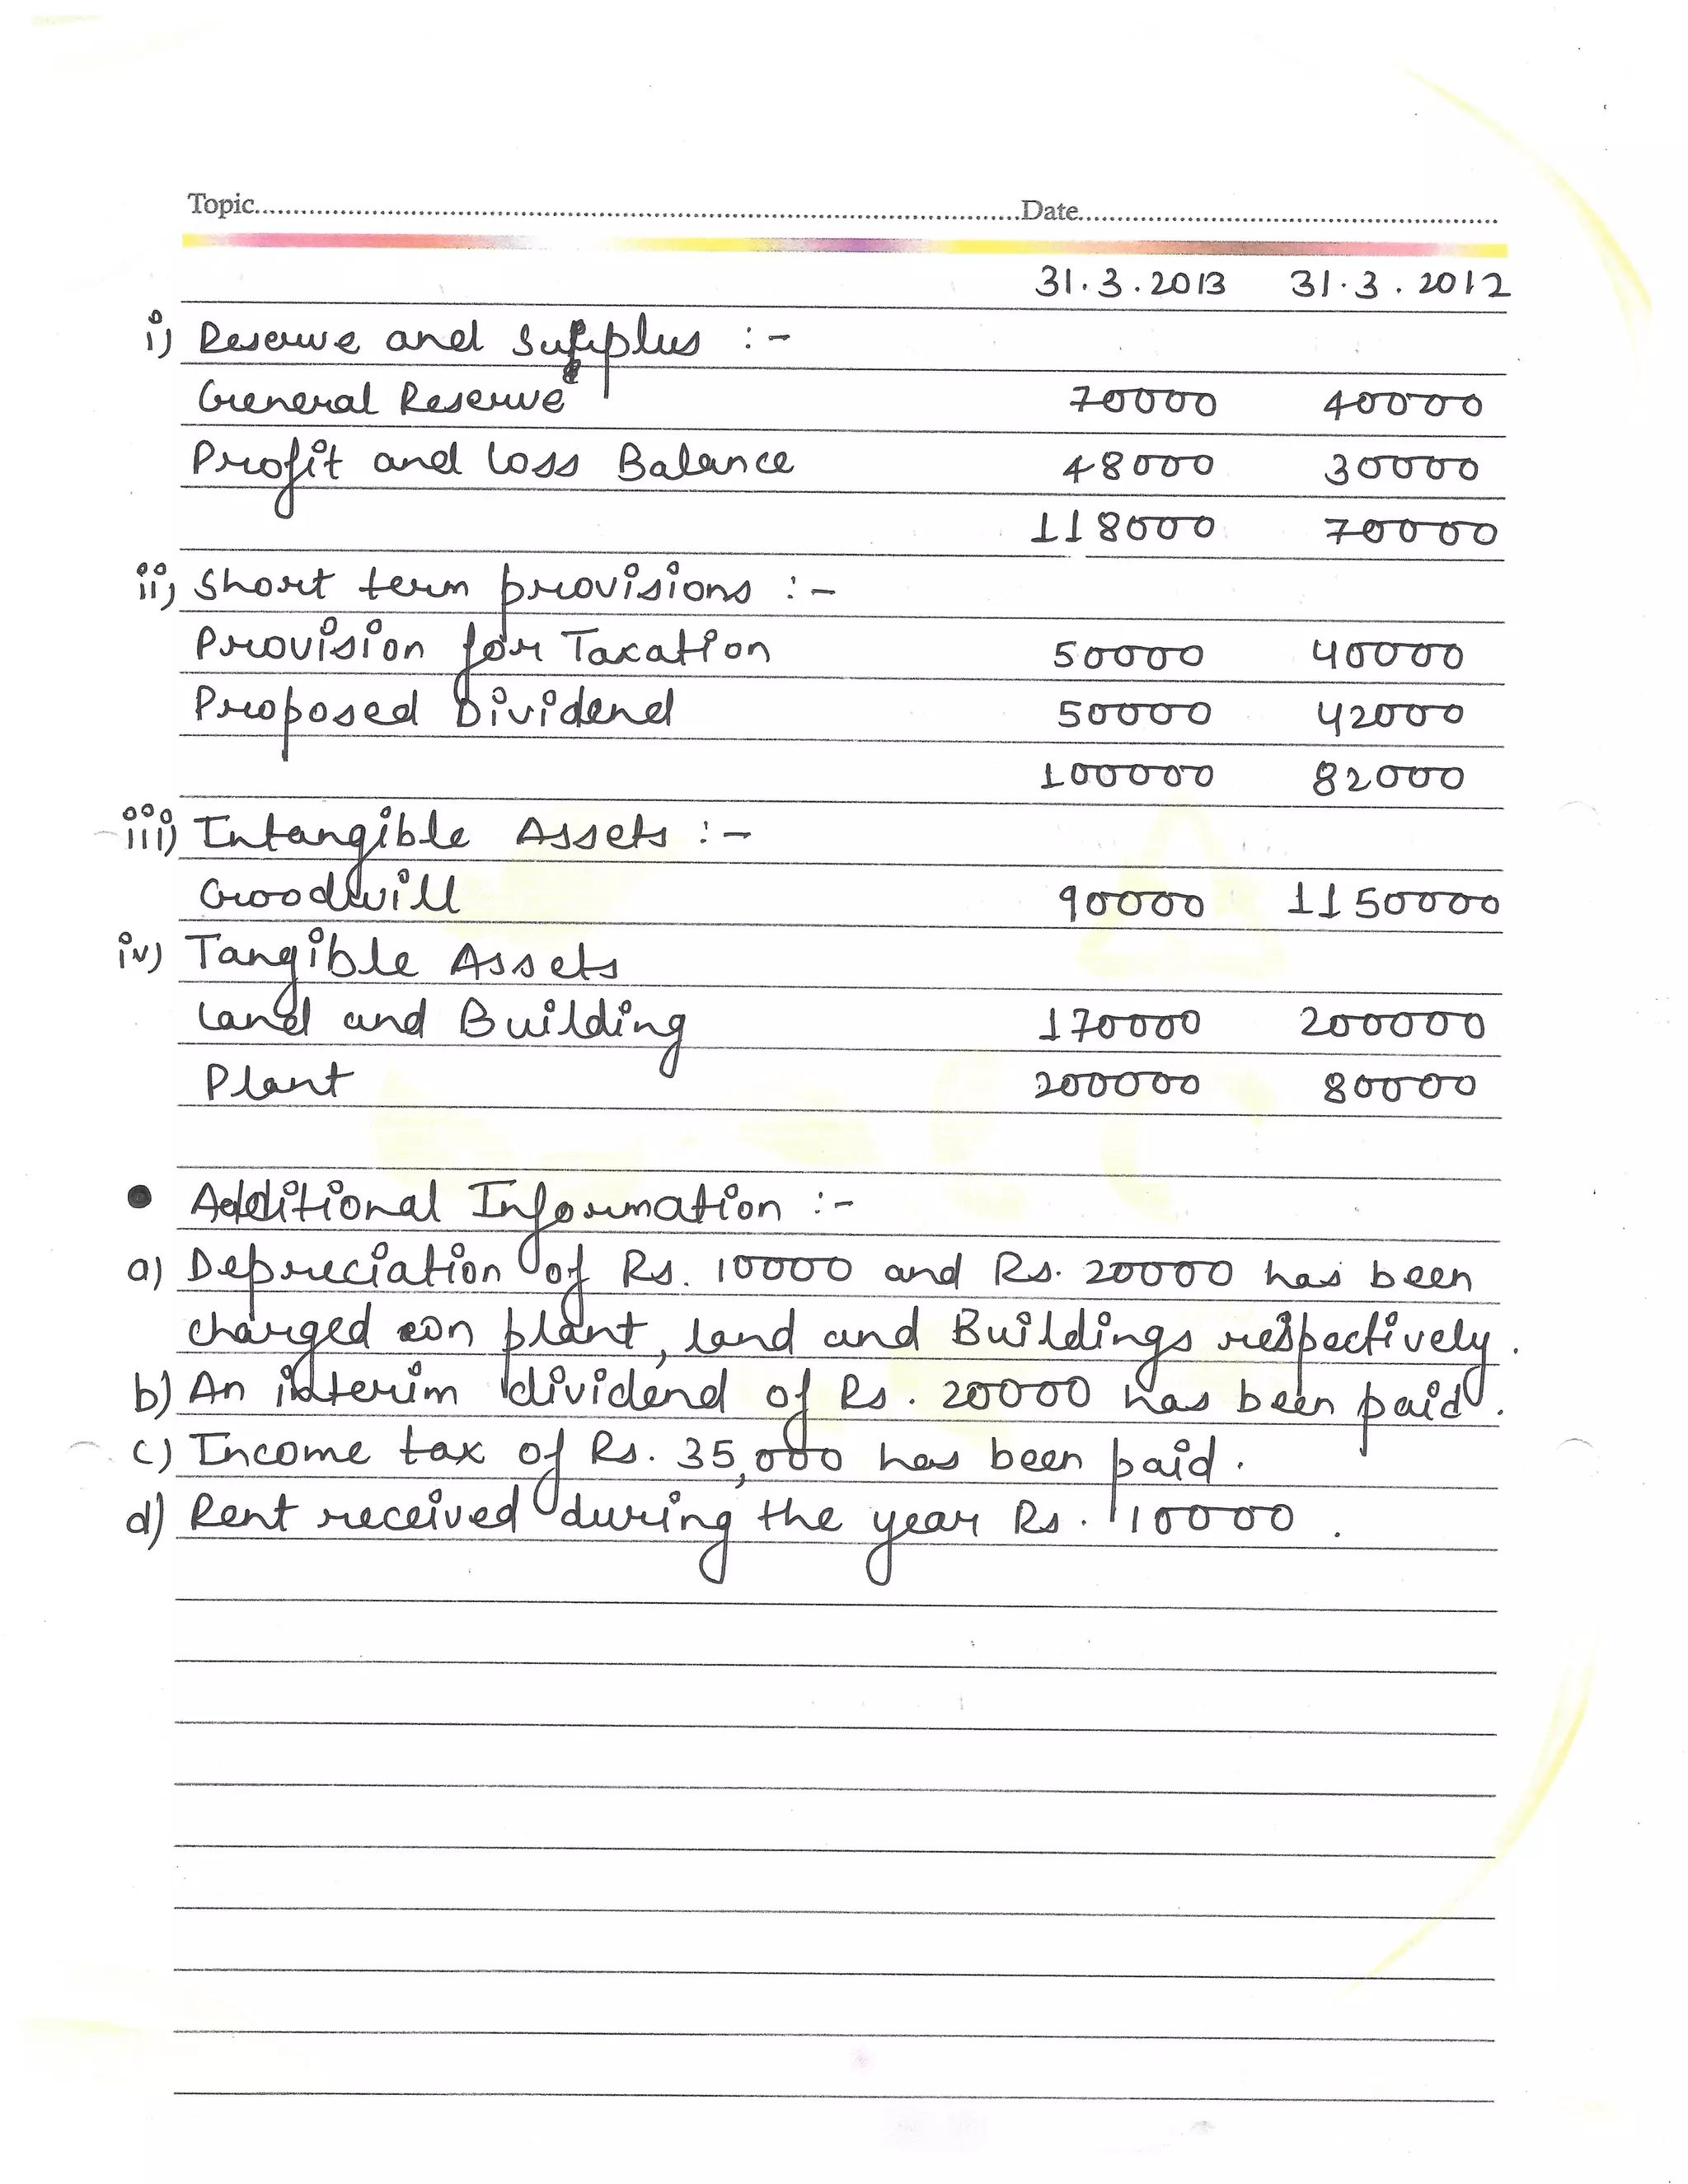 Topic.....Date.....
31.3.2013 31.3.2012
i) Reserve and Surplus :-
General Reserve 70000 40000
Profit and Loss Balance 48000 30000
118000 70000
ii) Short term provisions :-
Provision for Taxation 50000 40000
Proposed Dividend 50000 42000
100000 82000
iii) Intangible Assets :-
Goodwill 90000 1150000
iv) Tangible Assets
Land and Building 170000 200000
Plant 200000 80000
• Additional Information :-
a) Depreciation of Rs. 10000 and Rs. 20000 has been
charged on plant, land and Buildings respectively.
b) An interim dividend of Rs. 20000 has been paid.
c) Income tax of Rs. 35,000 has been paid.
d) Rent received during the year Rs. 10000.